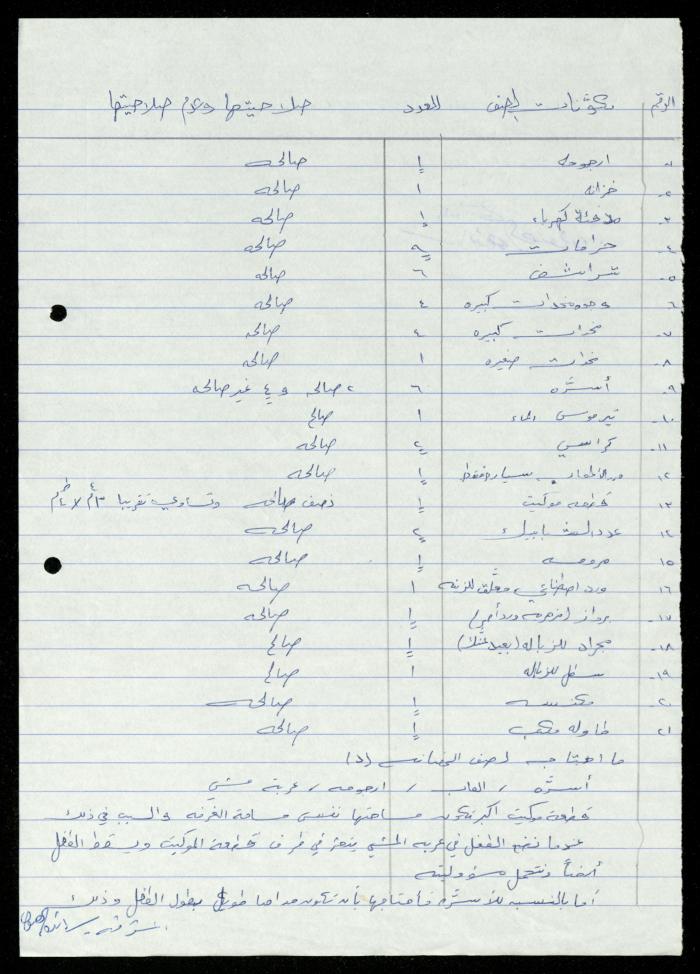 الرقم مكونات الصف العدد صلاحيتها وعدم صلاحيتها
١- ارجوحه ١ صالحه
٢- خزانه ١ صالحه
٣- مدفئة كهرباء ١ صالحه
٤- حرامات صالحه
٥- شراشف ٦ صالحه
٦- وجوه مخدات كبيره ٤ صالحه
٧- مخدات كبيره ٤ صالحه
٨- مخدات صغيره ١ صالحه
٩- أسرّه ٦ ٢ صالحه و ٤ غير صالحه
١٠- تيرموس الماء ١ صالح
١١- كراسي ٢ صالحه
١٢- فقط ١ صالحه
١٣- قطعه موكيت ١ نصف صالحه وتساوي تقريبا ٣م × ٤م
١٤- عدد الشبابيك ٢ صالحه
١٥- مروحه ١ صالحه
١٦- ورد اصطناعي معلّق للزينه ١ صالحه
١٧- برواز (مزهريه ورد أحمر) ١ صالحه
١٨- مجراد للزباله ١ صالح
١٩- سطل للزباله ١ صالح
٢٠- مكنسه ١ صالحه
٢١- طاوله مكتب ١ صالحه
ما احتاجه لصف الحضانه (د)
أسرّه / العاب / ارجوحه / عربة مشي
قطعة موكيت اكبر تكون مساحتها نفس مساحة الغرفه والسبب في ذلك
عندما نضع الطفل في عربه المشي يتعثر في طرف قطعة الموكيت ويسقط الطفل
أيضاً ونتحمل مسؤوليته
أما بالنسبه للأسرّه فأحتاجها بأن تكون طول بطول الطفل وذلك